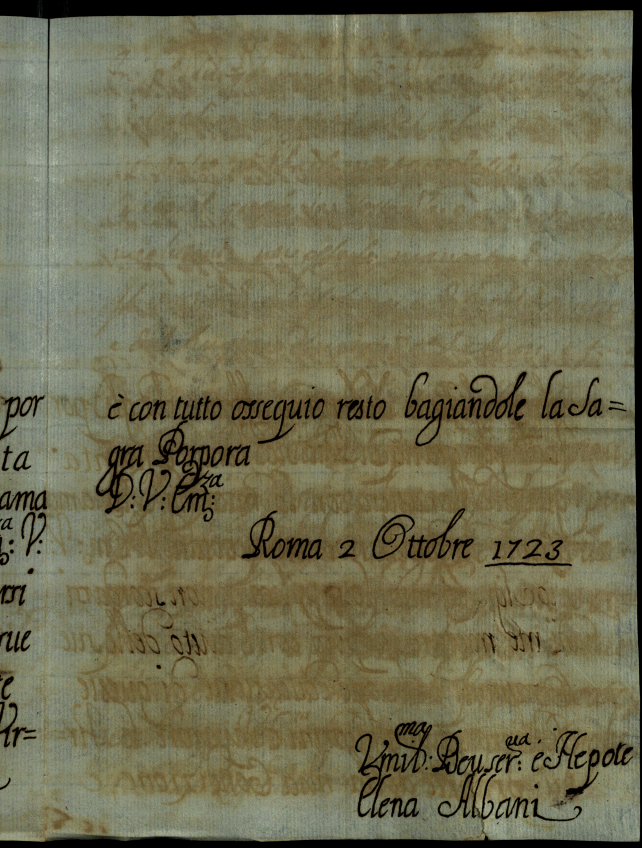 por
ta
ama
V:
rsi
sue
te
Vir=
è con tutto ossequio resto bagiandole la Sa=
gra Porpora
D: V: Em:za
Roma 2 Ottobre 1723
Vmil:ma Deu: ser:ua è Nepote
Elena Albani